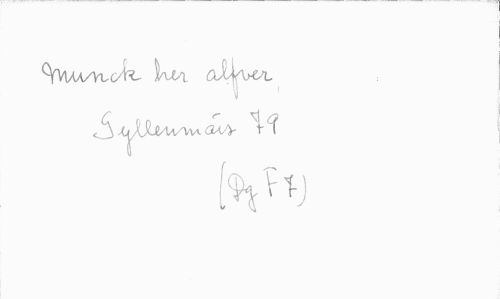 Munck her alfver
Gyllenmärs 79
(Dg F 7)